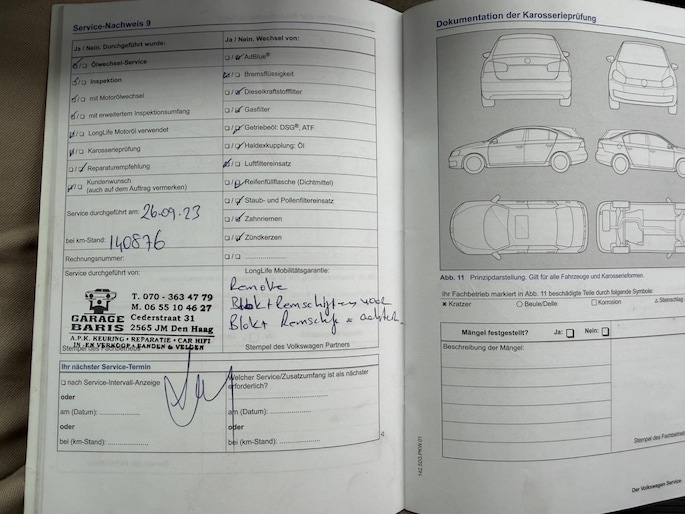 Service-Nachweis 9
Ja / Nein. Durchgeführt wurde:
☑/☐ Ölwechsel-Service
☑/☐ Inspektion
☑/☐ mit Motorölwechsel
☑/☐ mit erweitertem Inspektionsumfang
☑/☐ LongLife Motoröl verwendet
☑/☐ Karosserieprüfung
☐/☑ Reparaturempfehlung
☑/☐ Kundenwunsch
(auch auf dem Auftrag vermerken)
Service durchgeführt am: 26.09.23
bei km-Stand: 140876
Rechnungsnummer:
Service durchgeführt von:
GARAGE
BARIS
T. 070 - 363 47 79
M. 06 55 10 46 27
Cederstraat 31
2565 JM Den Haag
A.P.K. KEURING • REPARATIE • CAR HIFI
IN- EN VERKOOP • BANDEN & VELGEN
Stempel des Fachbetriebs
Ja / Nein. Wechsel von:
☐/☑ AdBlue®
☑/☐ Bremsflüssigkeit
☐/☑ Dieselkraftstofffilter
☐/☑ Gasfilter
☐/☑ Getriebeöl: DSG®, ATF
☐/☑ Haldexkupplung: Öl
☑/☐ Luftfiltereinsatz
☐/☑ Reifenfüllflasche (Dichtmittel)
☐/☑ Staub- und Pollenfiltereinsatz
☐/☑ Zahnriemen
☐/☑ Zündkerzen
☐/☐ ....................
LongLife Mobilitätsgarantie:
Remove
Blok + Remschijf
Blok + Remschijf = achter
Stempel des Volkswagen Partners
Ihr nächster Service-Termin
☐ nach Service-Intervall-Anzeige
oder
am (Datum): ....................
oder
bei (km-Stand): ....................
Welcher Service/Zusatzumfang ist als nächster
erforderlich?
4
Dokumentation der Karosserieprüfung
Abb. 11 Prinzipdarstellung. Gilt für alle Fahrzeuge und Karosserieformen.
Ihr Fachbetrieb markiert in Abb. 11 beschädigte Teile durch folgende Symbole:
× Kratzer ○ Beule/Delle ☐ Korrosion △ Steinschlag
Mängel festgestellt? Ja: ☐ Nein: ☐
Beschreibung der Mängel:
Stempel des Fachbetriebs
142.5G3.PKW.01
Der Volkswagen Service